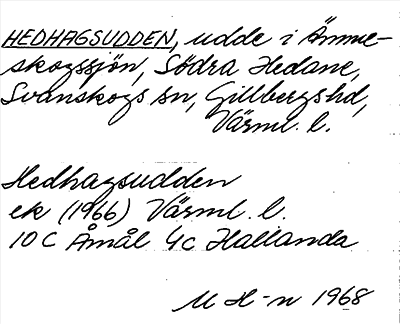 HEDHAGSUDDEN, udde i Ämme-
skogssjön, Södra Hedane,
Svanskogs sn, Gillbergs hd,
Värml. l.
Hedhagsudden
ek (1966) Värml. l.
10 C Åmål 4c Hallanda
M H-n 1968